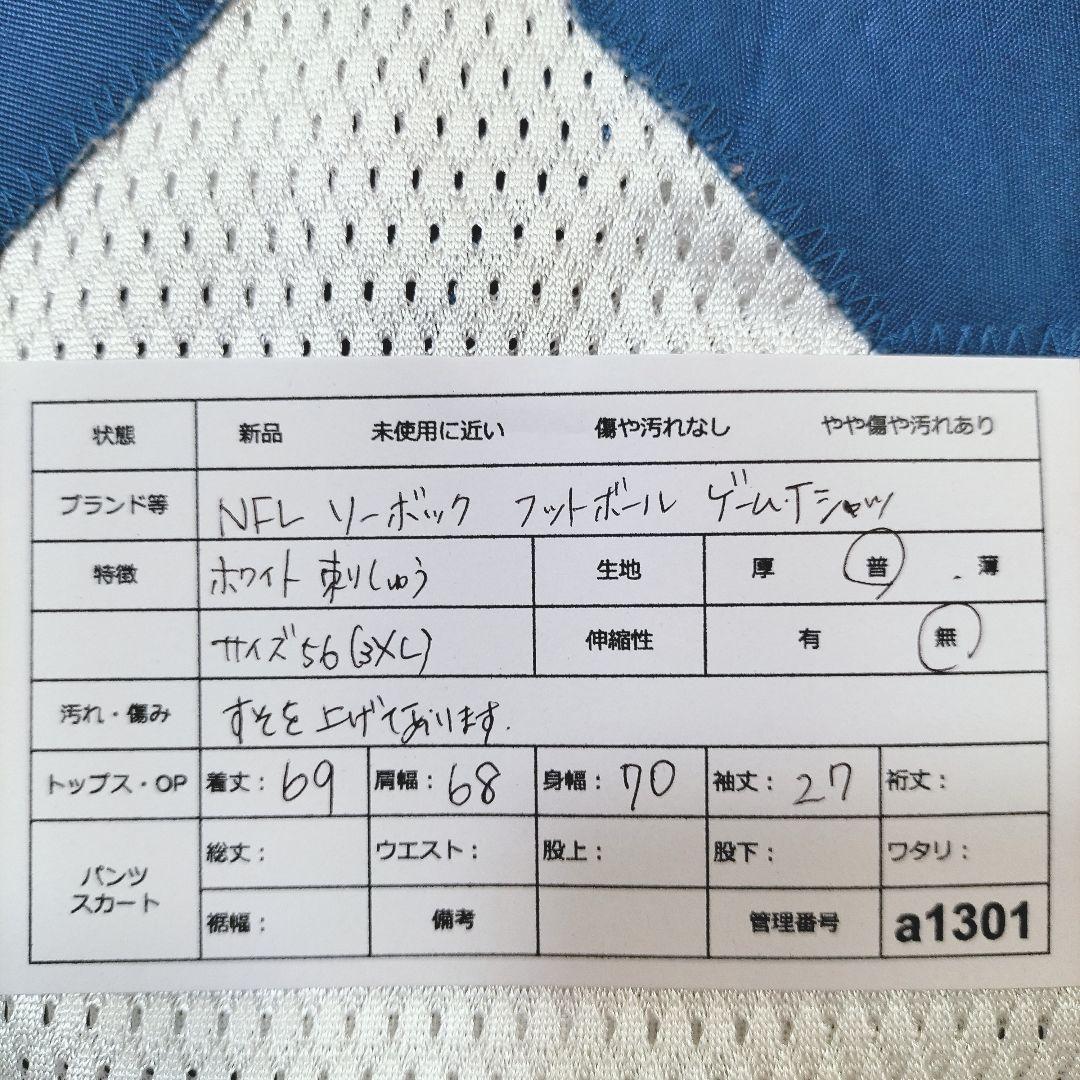 状態 新品 未使用に近い 傷や汚れなし やや傷や汚れあり
ブランド等 NFL リーボック フットボール ゲームTシャツ
特徴 ホワイト 刺しゅう 生地 厚 普 薄
サイズ56(3XL) 伸縮性 有 無
汚れ・傷み すそを上げております.
トップス・OP 着丈: 69 肩幅: 68 身幅: 70 袖丈: 27 裄丈:
パンツ スカート
総丈: ウエスト: 股上: 股下: ワタリ:
裾幅: 備考 管理番号 a1301